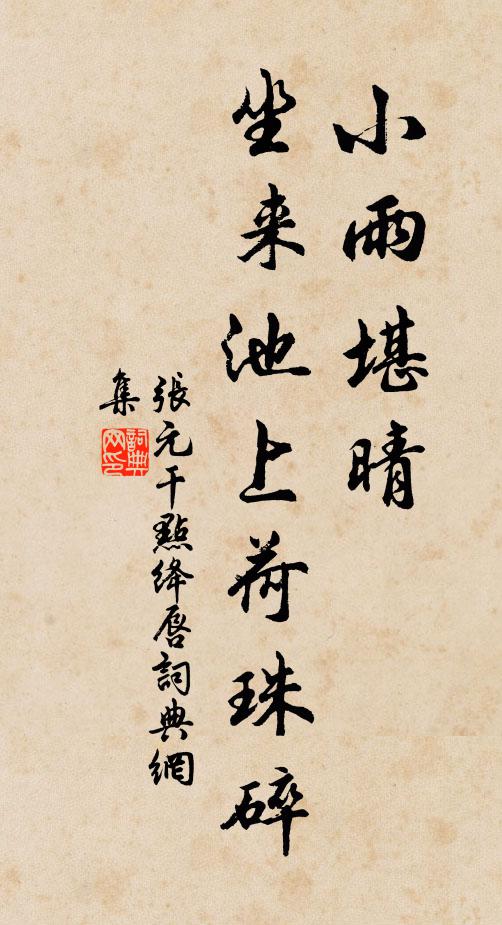 小雨堪晴
坐来池上荷珠碎
張元干點絳唇詞典網
集
詞典
网印